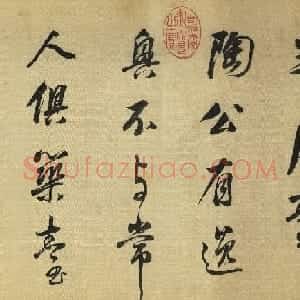 陶公有逸
興不与常
人俱築臺
Shufaziliao.com